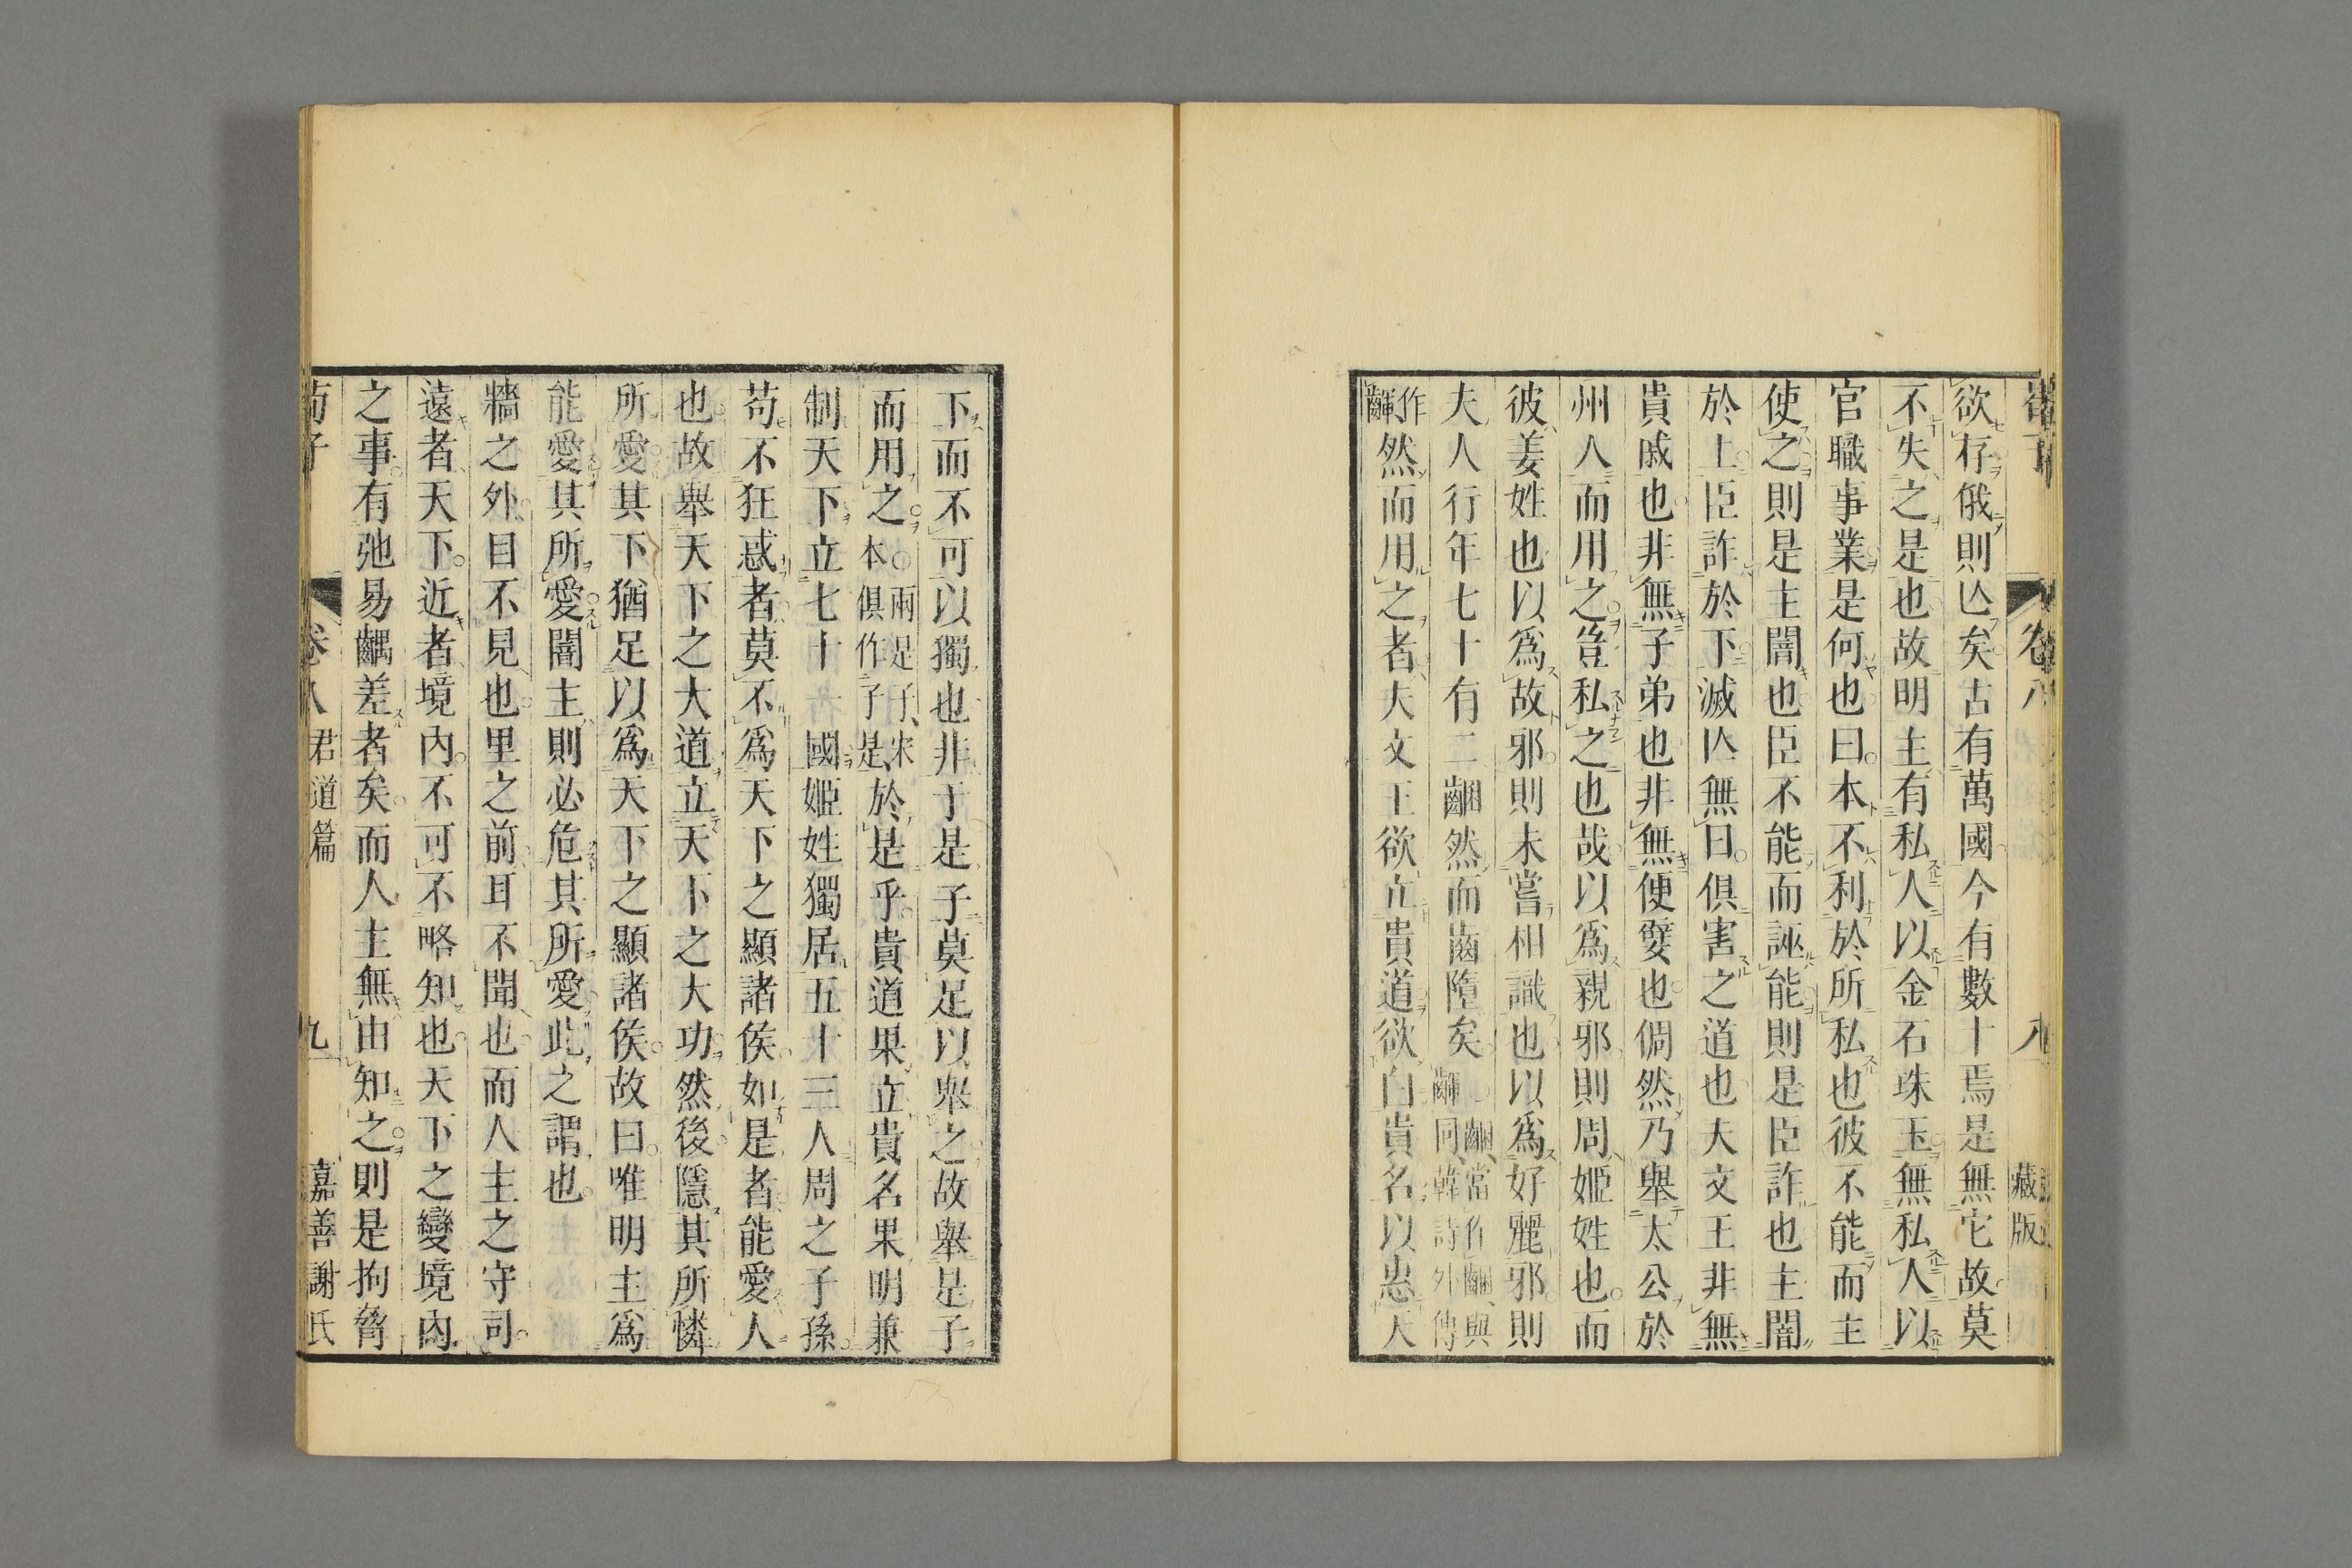 卷八
八
藏版
欲存俄則亾矣古有萬國今有數十焉是無它故莫
不失之是也故明主有私人以金石珠玉無私人以
官職事業是何也曰本不利於所私也彼不能而主
使之則是主闇也臣不能而誣能則是臣詐也主闇
於上臣詐於下滅亾無日俱害之道也夫文王非無
貴戚也非無子弟也非無便嬖也倜然乃舉太公於
州人而用之豈私之也哉以爲親邪則周姬姓也而
彼姜姓也以爲故邪則未嘗相識也以爲好麗邪則
夫人行年七十有二齫然而齒隨矣
然而用之者夫文王欲立貴道欲白貴名以惠天
下而不可以獨也非于是子莫足以舉之故舉是子
而用之○兩是子宋本俱作子是於是乎貴道果立貴名果明兼
制天下立七十一國姬姓獨居五十三人周之子孫
苟不狂惑者莫不爲天下之顯諸侯如是者能愛人
也故舉天下之大道立天下之大功然後隱其所憐
所愛其下猶足以爲天下之顯諸侯故曰唯明主爲
能愛其所愛闇主則必危其所愛此之謂也
牆之外目不見也里之前耳不聞也而人主之守司
遠者天下近者境內不可不略知也天下之變境內
之事有弛易齵差者矣而人主無由知之則是拘脅
荀子
卷八
君道篇
九
嘉善謝氏